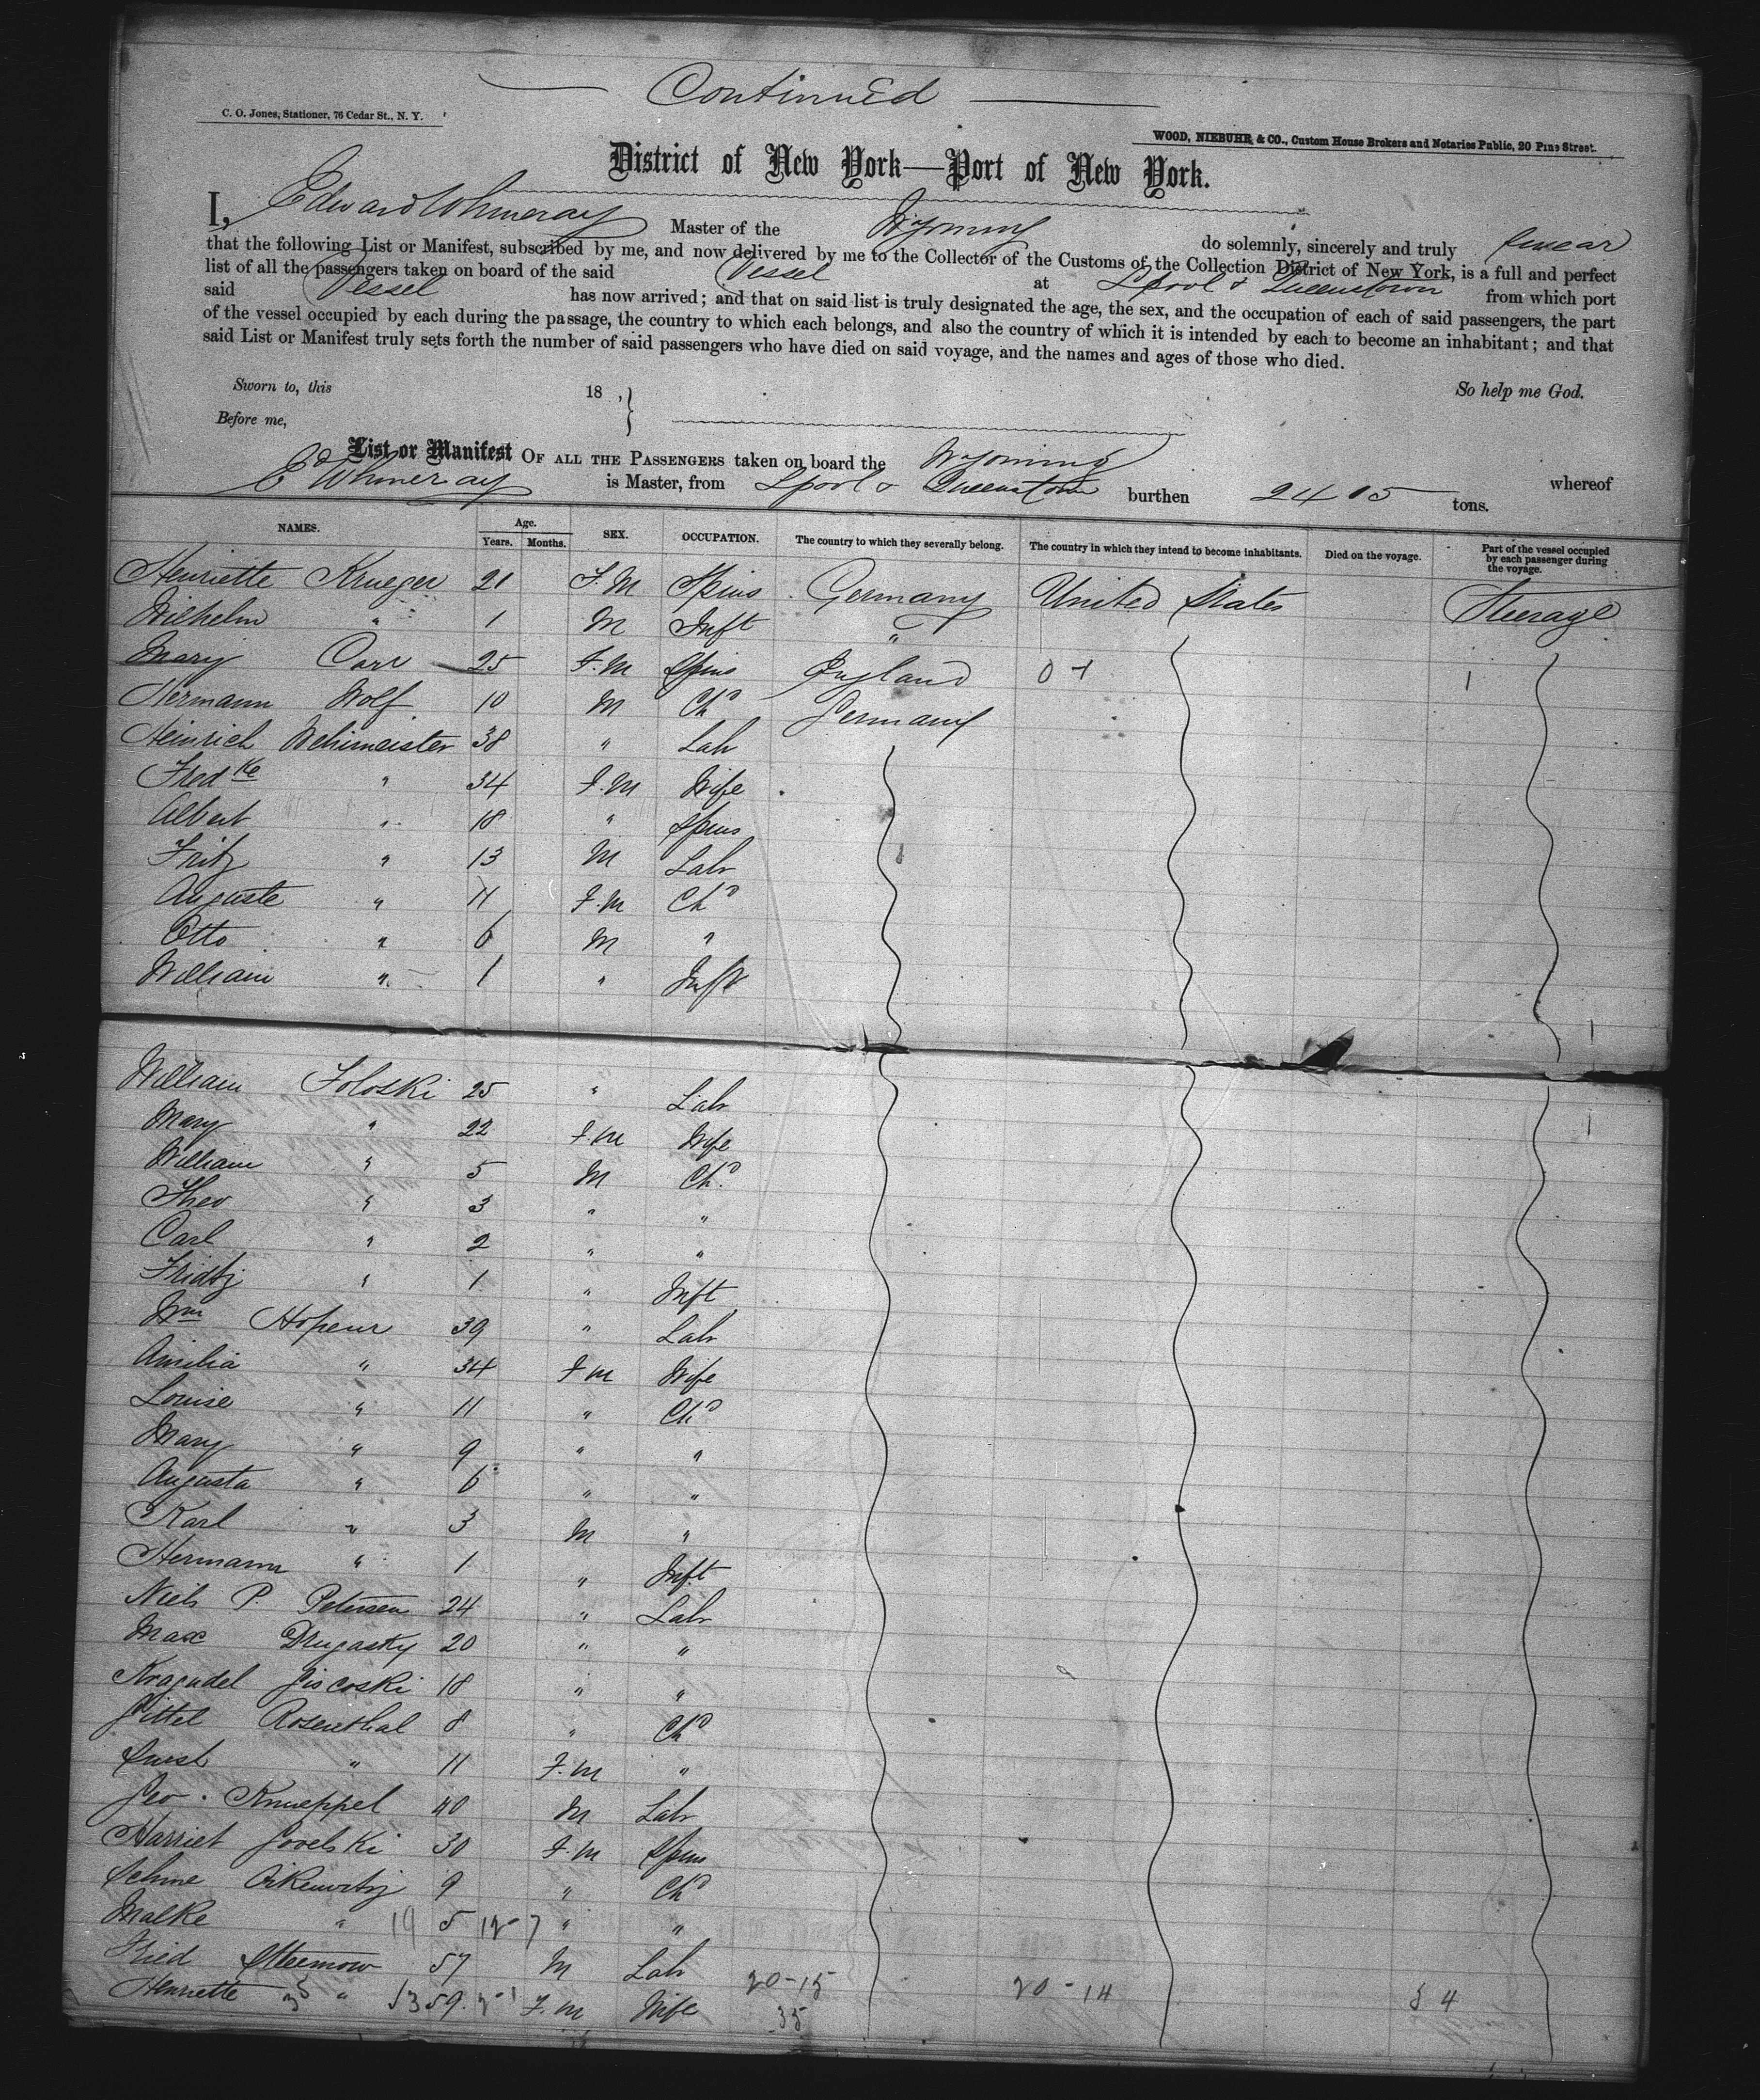 Continued
C. O. Jones, Stationer, 76 Cedar St., N. Y.
WOOD, NIEBUHR & CO., Custom House Brokers and Notaries Public, 20 Pine Street.
District of New York—Port of New York.
I, Edward Whineray Master of the Wyoming do solemnly, sincerely and truly swear
that the following List or Manifest, subscribed by me, and now delivered by me to the Collector of the Customs of the Collection District of New York, is a full and perfect
list of all the passengers taken on board of the said Vessel at Lpool & Queenstown from which port
said Vessel has now arrived; and that on said list is truly designated the age, the sex, and the occupation of each of said passengers, the part
of the vessel occupied by each during the passage, the country to which each belongs, and also the country of which it is intended by each to become an inhabitant; and that
said List or Manifest truly sets forth the number of said passengers who have died on said voyage, and the names and ages of those who died.
Sworn to, this 18 , So help me God.
Before me,
List or Manifest OF ALL THE PASSENGERS taken on board the Wyoming whereof
E Whineray is Master, from Lpool & Queenstown burthen 2415 tons.
NAMES. Age. Years. Months. SEX. OCCUPATION. The country to which they severally belong. The country in which they intend to become inhabitants. Died on the voyage. Part of the vessel occupied by each passenger during the voyage.
Henriette Krueger 21 F.M Spins Germany United States Steerage
Wilhelm " 1 M Inft "
Mary Carr 25 F.M Spins England 0 + 1
Hermann Wolf 10 M Chd Germany
Heinrich Wehimeister 38 " Lab
Fredke " 34 F.M Wife
Albert " 18 " Spins
Fritz " 13 M Labr
Auguste " 11 F.M Chd
Otto " 6 M "
William " 1 " Inft
William Foloski 25 " Labr
Mary " 22 F.M Wife
William " 5 M Chd
Theo " 3 " "
Carl " 2 " "
Fridtz " 1 " Inft
Wm Hopeur 39 " Labr
Amilia " 34 F M Wife
Louise " 11 " Chd
Mary " 9 " "
Augusta " 6 " "
Karl " 3 M "
Hermann " 1 " Inft
Niels P. Petersen 24 " Labr
Max Drugasky 20 " "
Kragudel Giscoski 18 " "
Gittel Rosenthal 8 " Chd
" 11 F.M "
Geo. Knueppel 40 M Labr
Harriet Govelski 30 F.M Spins
Schme Oikewitz 9 " Chd
Malke " 19 5 12-7 " "
Fried 57 M Labr 20-15 20-14 8 4
Henriette 35 " 53 59. 2-1 F.M Wife 35